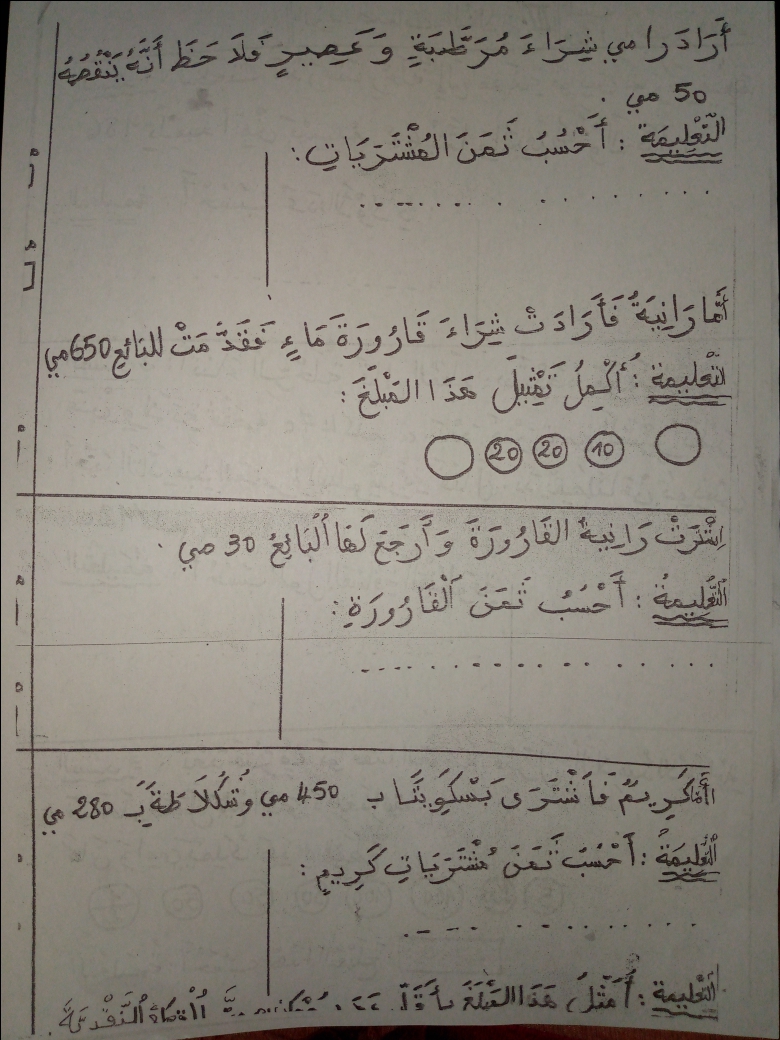 أَرَادَ رامي شِرَاءَ مُرَطَّبَةٍ وَ عَصِيرٍ فَلاَحَظَ أَنَّهُ يَنْقُصُهُ
50 مي .
التَّعْلِيمَة : أَحْسُبُ ثَمَنَ المُشْتَرَيَاتِ :
أَمَّا رَانِيَةُ فَأَرَادَتْ شِرَاءَ قَارُورَةَ مَاءٍ فَقَدَّمَتْ للبَائِعِ 650 مي
التَّعْلِيمَة : أُكْمِلُ تَمْثِيلَ هَذَا المَبْلَغَ :
20 20 10
اِشْتَرَتْ رَانِيَةُ القَارُورَةَ وَأَرْجَعَ لَهَا الْبَائِعُ 30 مي .
التَّعْلِيمَةُ : أَحْسُبُ ثَمَنَ الْقَارُورَةِ :
أَمَّا كَرِيمٌ فَاشْتَرَى بَسْكَوِيتًا بِ 450 مي وَشُكُلَاطَةً بِـ 280 مي
التَّعْلِيمَةُ : أَحْسُبُ ثَمَنَ مُشْتَرَيَاتِ كَرِيمٍ :
التَّعْلِيمَة : أُمَثِّلُ هَذَا المَبْلَغَ بِأَقَلِّ عَدَدٍ مُمْكِنٍ مِنَ الْقِطَعِ النَّقْدِيَّةِ .